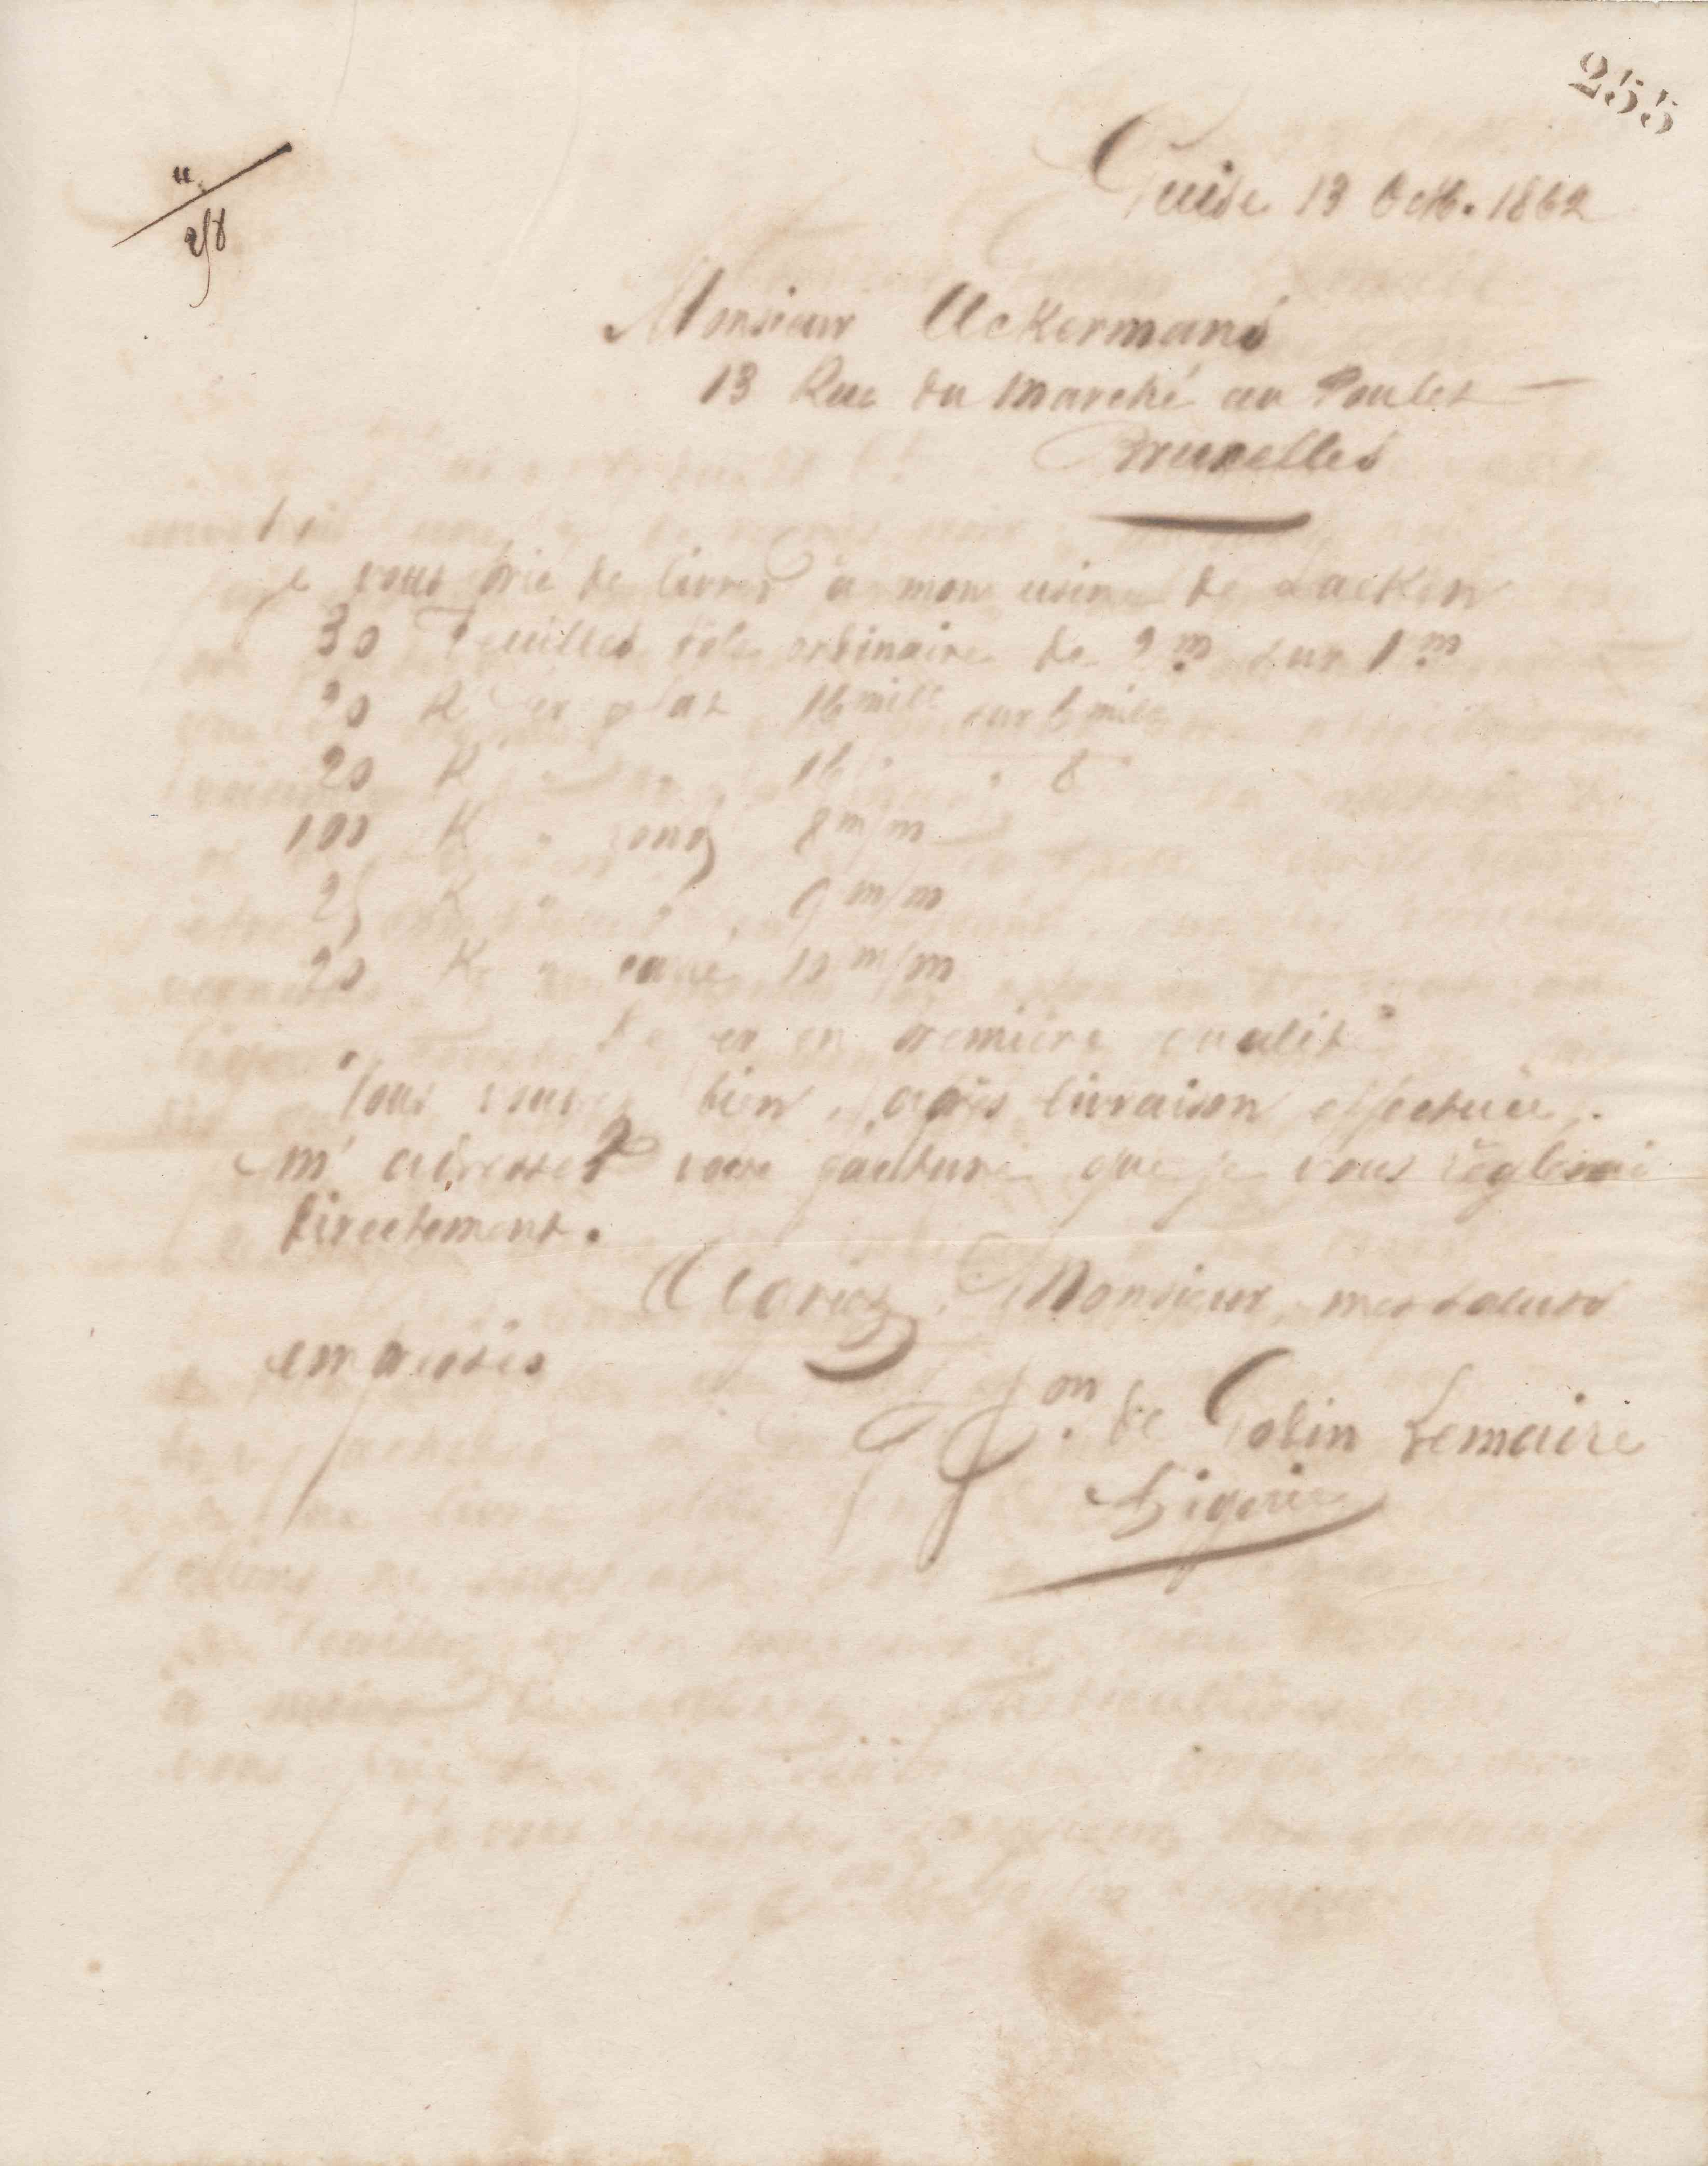 255
Guise 13 Octb. 1862
Monsieur Ackermans
13 Rue du Marché au Poulet
Bruxelles
Je vous prie de livrer à mon usine de Laeken
30 Feuilles tôle ordinaire de 2m sur 1m
20 K fer plat 16mill sur 6mill
20 K 16 8
100 K " rond 8m/m
25 K " " 9m/m
20 K " carré 10m/m
Le fer en première qualité
Vous voudrez bien, après livraison effectuée,
m'adresser votre facture que je vous règlerai
directement.
Agréez, Monsieur, mes saluts
empressés
Pon. de Godin Lemaire